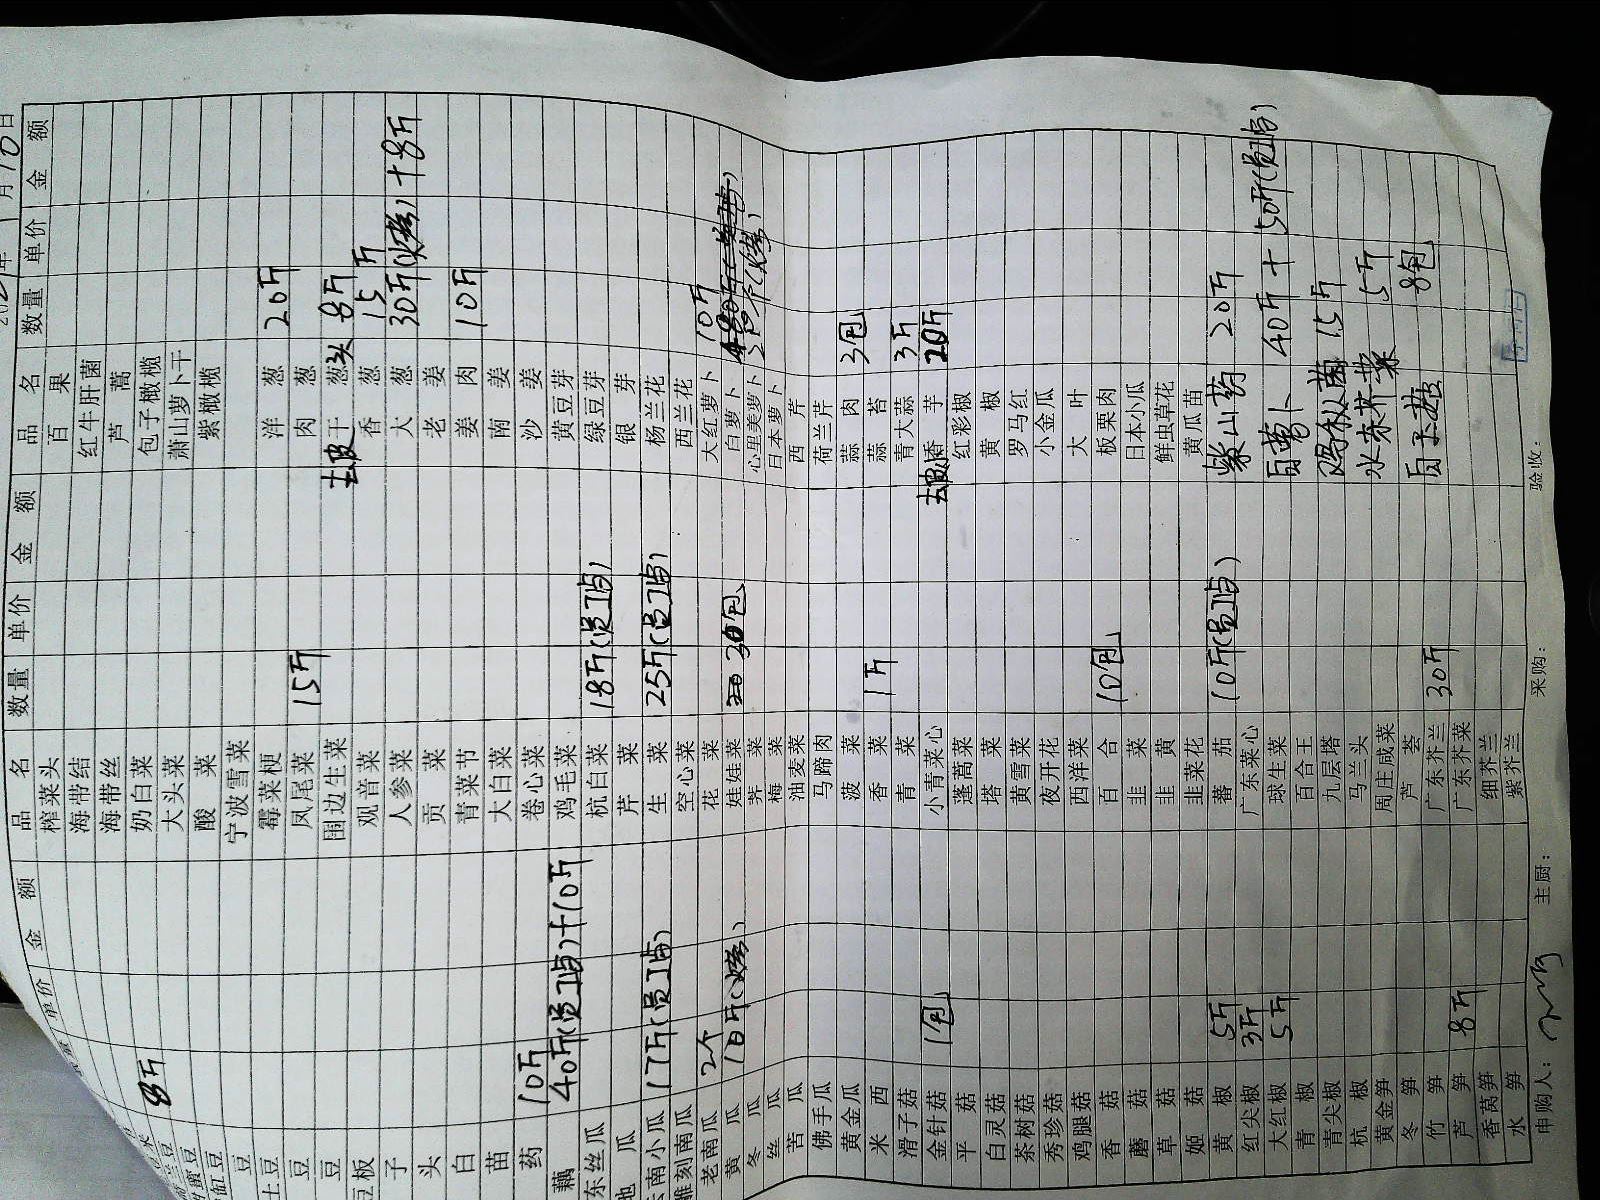 品名 数量 单价 金额
8斤
山药 10斤
藕 40斤(员工焇)+10斤
东丝瓜
地瓜
云南小瓜 17斤(员工焇)
雕刻南瓜
老南瓜 2个
黄瓜 10斤(烤)
冬瓜
丝瓜
苦瓜
佛手瓜
黄金瓜
米西
滑子菇
金针菇 1包
平菇
白灵菇
茶树菇
秀珍菇
鸡腿菇
香菇
蘑菇
草菇
姬菇
黄椒 5斤
红尖椒 3斤
大红椒 5斤
青椒
青尖椒
杭椒
黄金笋
冬笋
竹笋
芦笋 8斤
香莴笋
水笋
品名 数量 单价 金额
榨菜头
海带结
海带丝
奶白菜
大头菜
酸菜
宁波雪菜
霉菜梗
凤尾菜 15斤
围边生菜
观音菜
人参菜
贡菜
青菜节
大白菜
卷心菜
鸡毛菜
杭白菜 18斤(员工焇)
芹菜
生菜 25斤(员工焇)
空心菜
花菜
娃娃菜 30包
荠菜
梅菜
油麦菜
马蹄肉
菠菜
香菜 1斤
青菜
小青菜心
蓬蒿菜
塔菜
黄雪菜
夜开花
西洋菜
百合 10包
韭菜
韭黄
韭菜花
蕃茄 10斤(员工焇)
广东菜心
球生菜
百合王
九层塔
马兰头
周庄咸菜
芦荟
广东芥兰 30斤
广东芥菜
细芥兰
紫芥兰
年1月10日
品名 数量 单价 金额
百果
红牛肝菌
芦蒿
包子橄榄
萧山萝卜干
紫橄榄
洋葱 20斤
肉葱
去皮干葱头 8斤
香葱 15斤
大葱 30斤(烤)+8斤
老姜
姜肉 10斤
南姜
沙姜
黄豆芽
绿豆芽
银芽
杨兰花
西兰花
大红萝卜 10斤
白萝卜
心里美萝卜
日本萝卜
西芹
荷兰芹
蒜肉 3包
蒜苔
青大蒜 3斤
去皮香芋 20斤
红彩椒
黄椒
罗马红
小金瓜
大叶
板栗肉
日本小瓜
鲜虫草花
黄瓜苗
紫山药 20斤
白萝卜 40斤+50斤(员工焇)
鸡枞菌 15斤
水东芥菜 5斤
白玉菇 8包
申购人: 主厨: 采购: 验收: